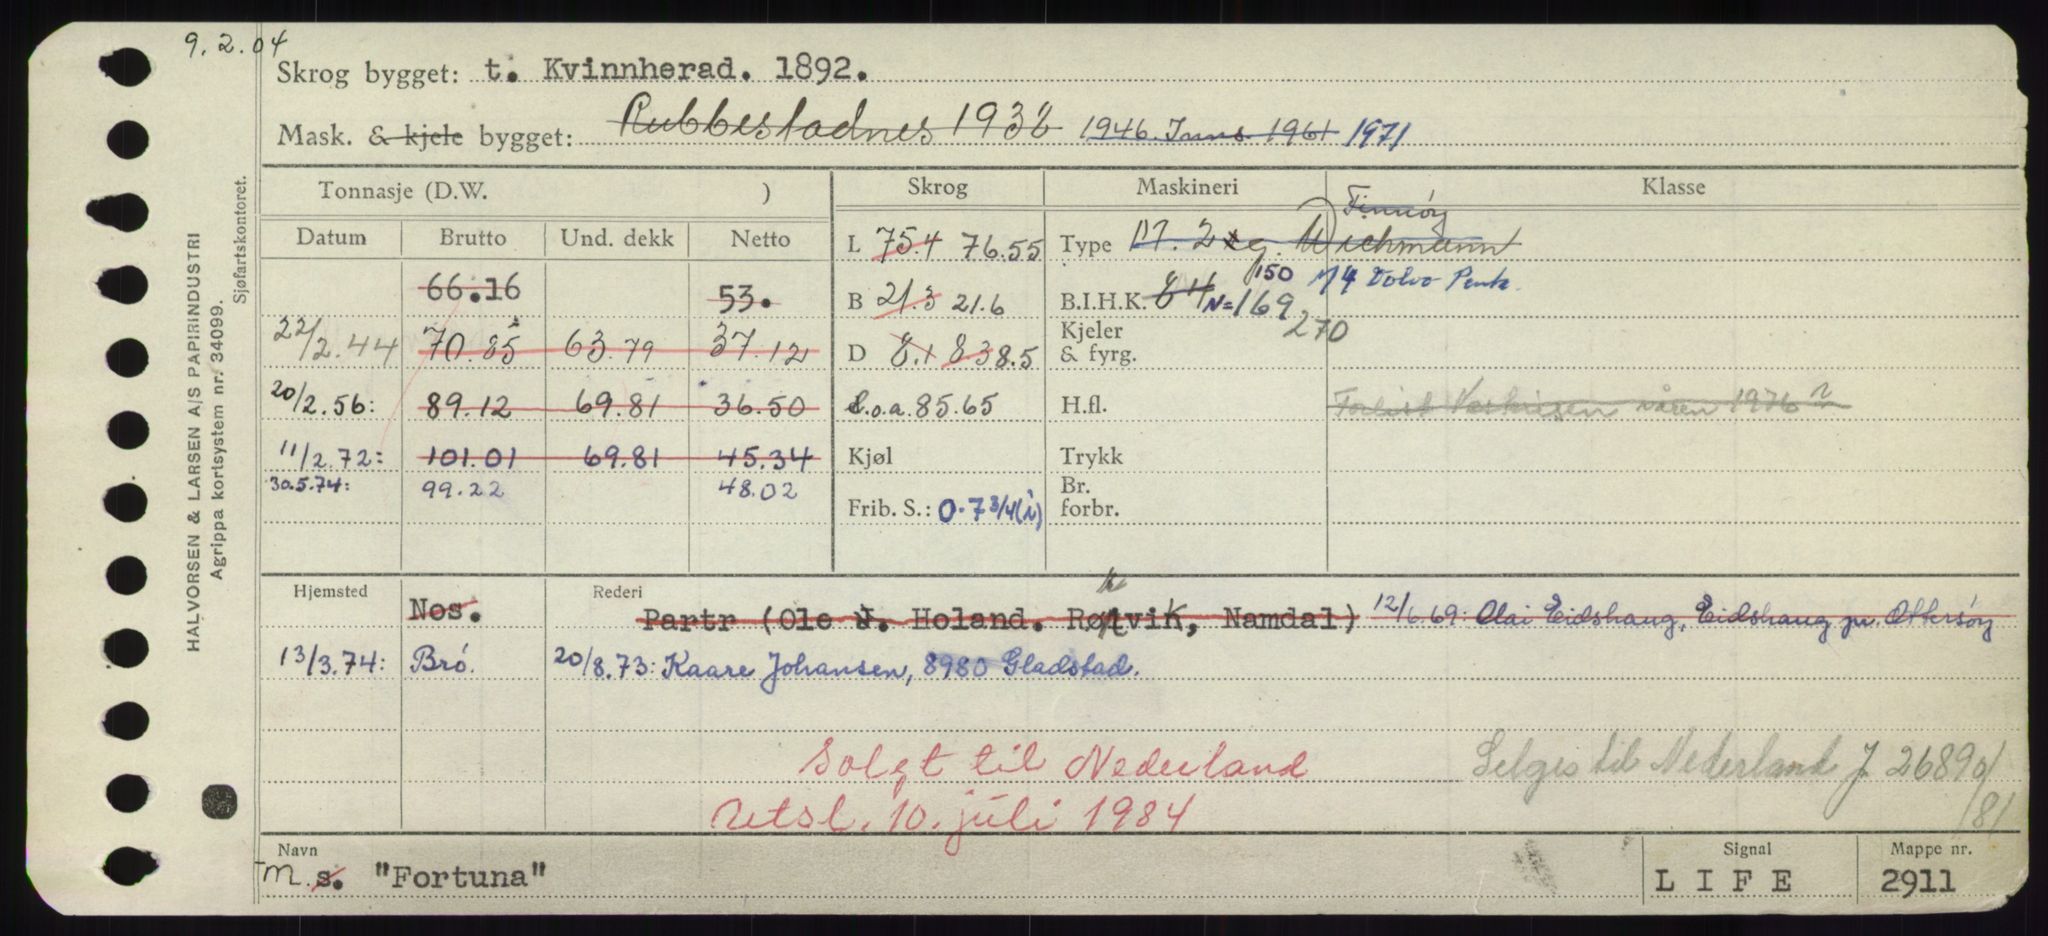 9.2.04
Skrog bygget: t. Kvinnherad. 1892.
Mask. & kjele bygget: Rubbestadnes 1938 1946. 1961 1971
Tonnasje (D.W. ) Skrog Maskineri Klasse
Datum Brutto Und. dekk Netto
L 75.4 76.55 Type M. 2 Wichmann Finnöy
66.16 53. B 21.3 21.6 B.I.H.K. 84 N=169 150 M 4 Volvo Penta.
270
22/2.44 70.85 63.79 37.12 D 8.1 8.3 8.5 Kjeler & fyrg.
20/2.56: 89.12 69.81 36.50 L.o.a. 85.65 H.fl. Forlist våren 1976
11/2.72: 101.01 69.81 45.34 Kjøl Trykk
30.5.74: 99.22 48.02 Frib. S.: 0.7 3/4 (i) Br. forbr.
Hjemsted Rederi
Nos. Partr (Ole J. Holand. Rørvik, Namdal) 12/6.69: Olai Eidshaug, Eidshaug pr. Ottersøy
13/3.74: Brö. 20/8.73: Kaare Johansen, 8980 Gladstad.
Solgt til Nederland Selges til Nederland J 2689/81
Utsl. 10. juli 1984
Navn Signal Mappe nr.
m s. "Fortuna" L I F E 2911
HALVORSEN & LARSEN A/S PAPIRINDUSTRI
Agrippa kortsystem nr. 34099.
Sjøfartskontoret.